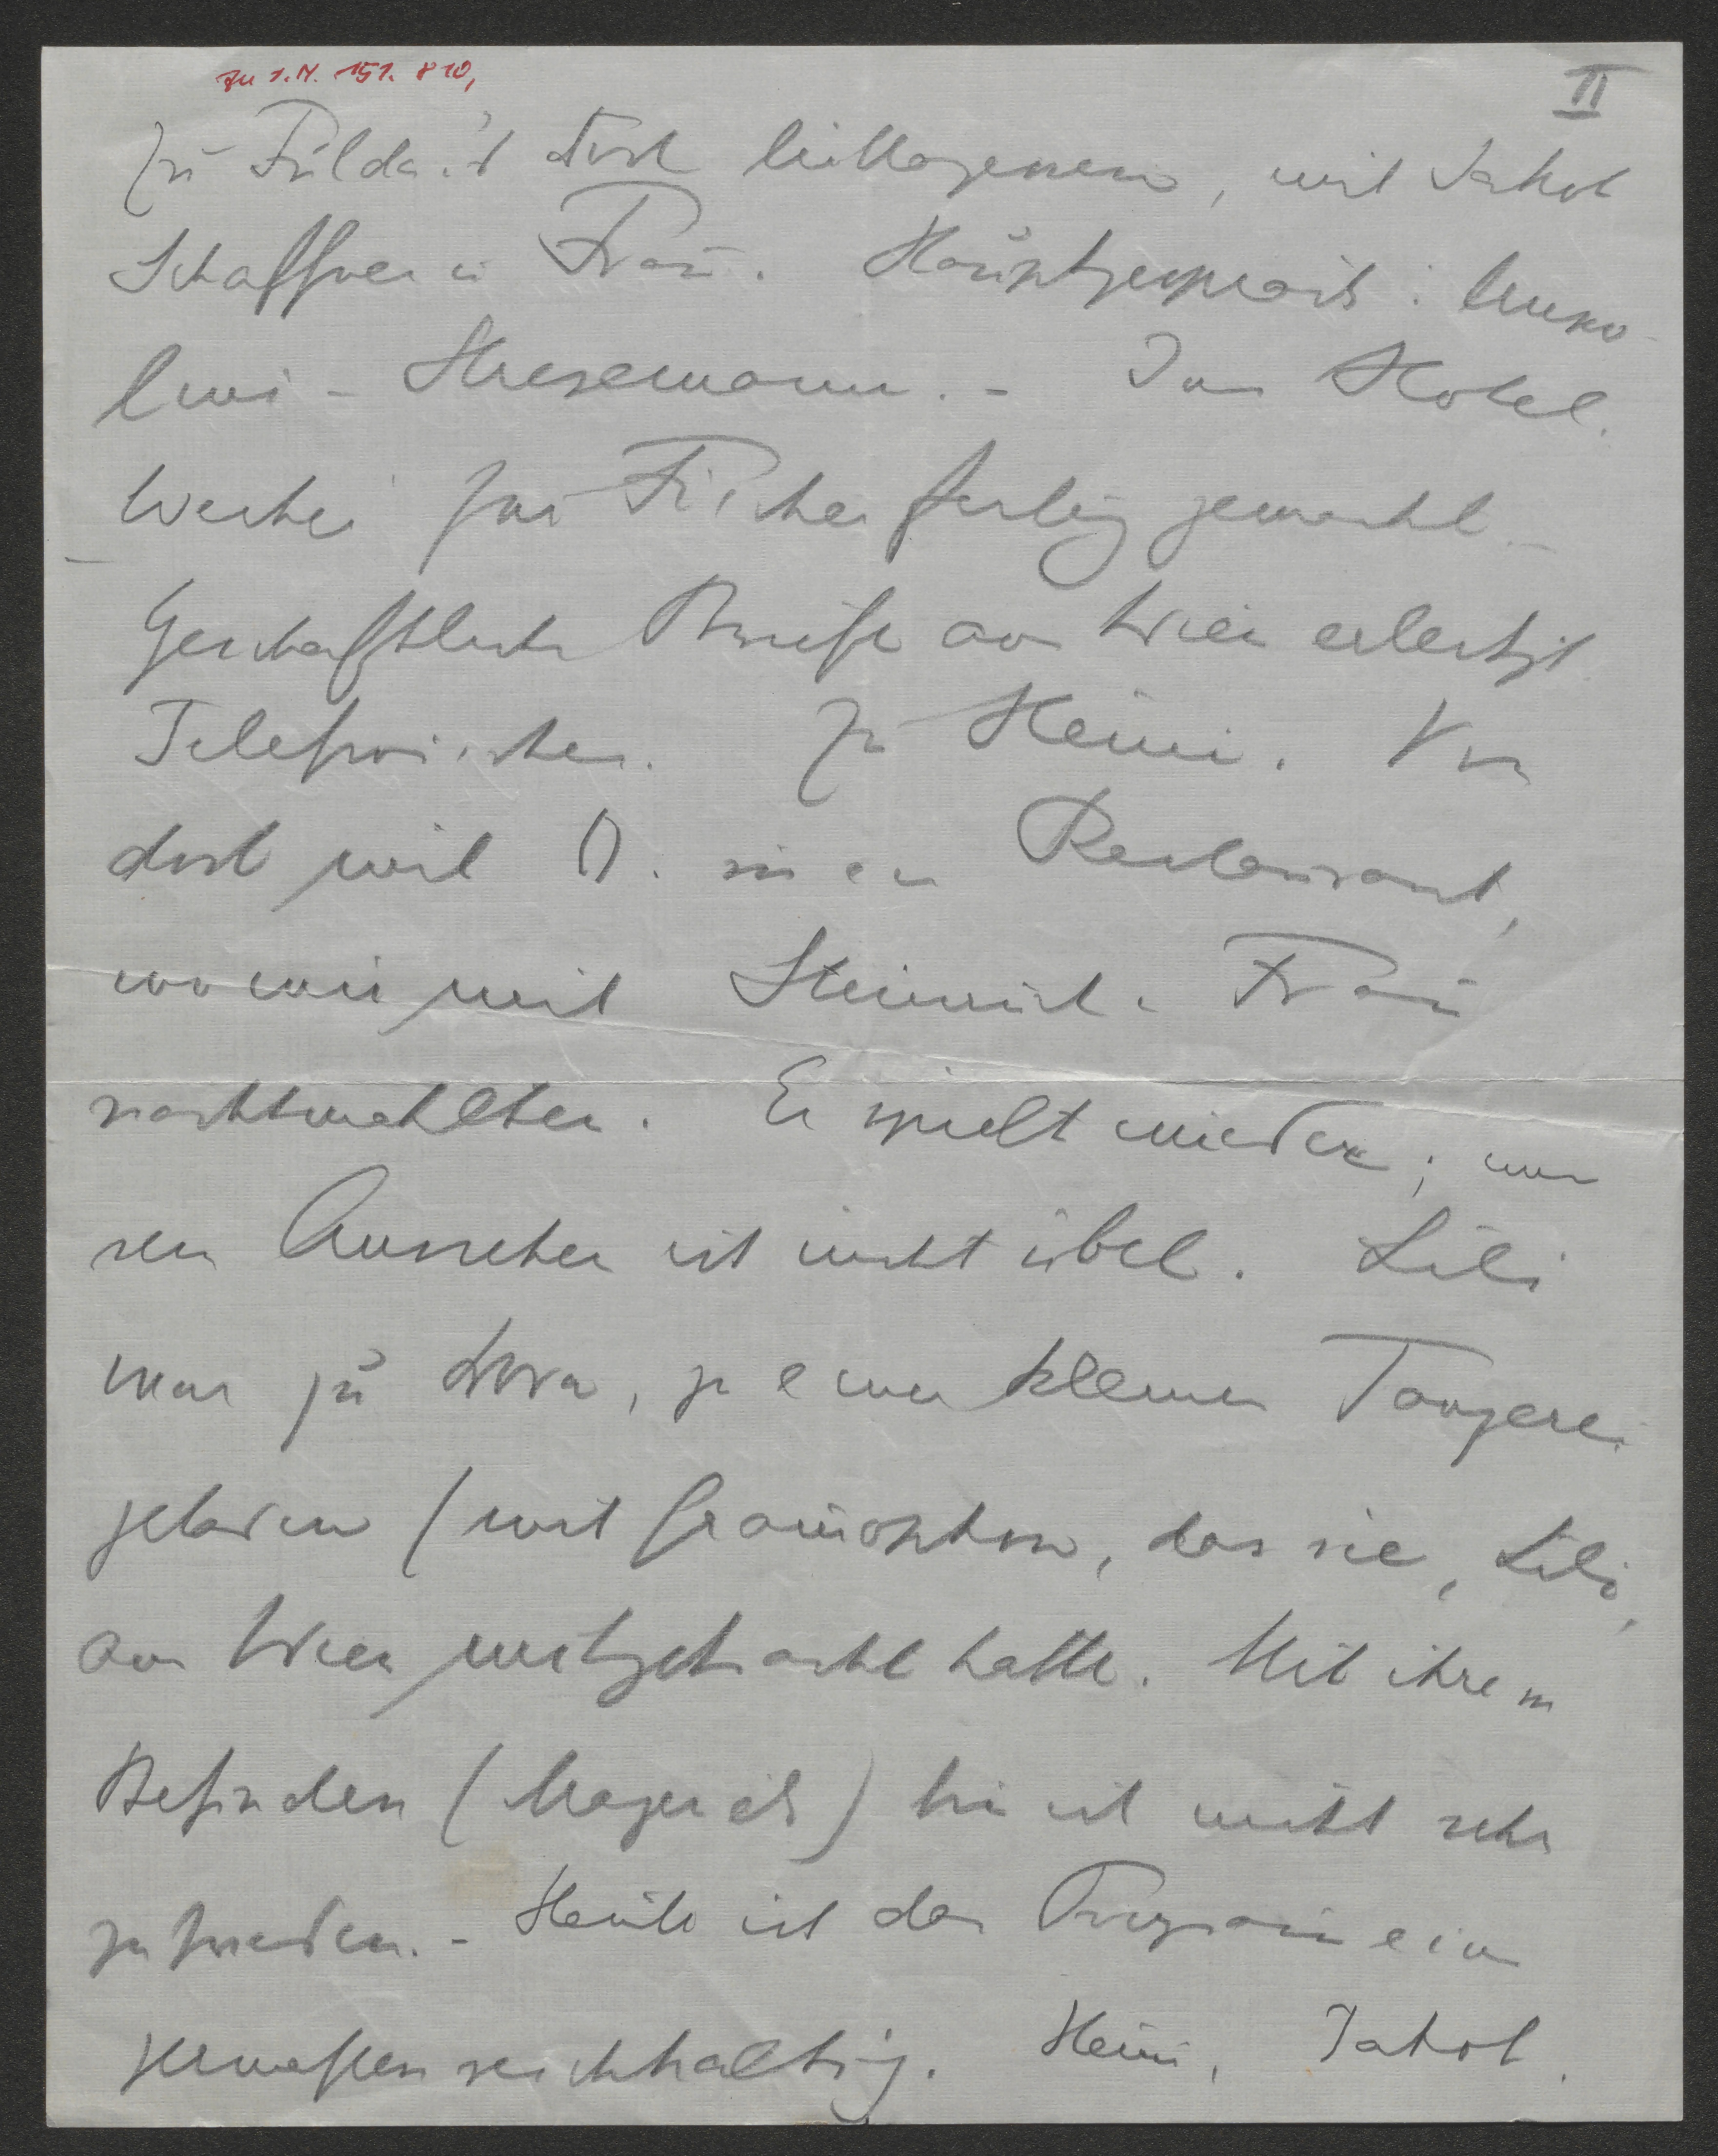 zu I. N. 151. 810,
II
Zu Fulda's dort Mittagessen, mit Jakob
Schaffner u Frau. Hauptgespräch: Musso
lini – Stresemann. – Im Hotel.
Weiher für Fischer fertig gemacht –
Geschäftliche Briefe aus Wien erledigt
Telefonischer. Zu Heini. Von
dort mit O. in ein Restaurant,
wo wir mit Steinrück u. Frau
nachtmahlten. Er spielt wieder; nur
sein Aussehen ist nicht übel. Lili
war zu Dora, zu einer kleinen Tanzerei
geladen (mit Gramophon, das sie, Lili,
aus Wien mitgebracht hatte. Mit ihrem
Befinden (Magen etc) bin ich nicht sehr
zufrieden. – Heute ist das Program eini
germaßen reichhaltig. Heini, Jakob.